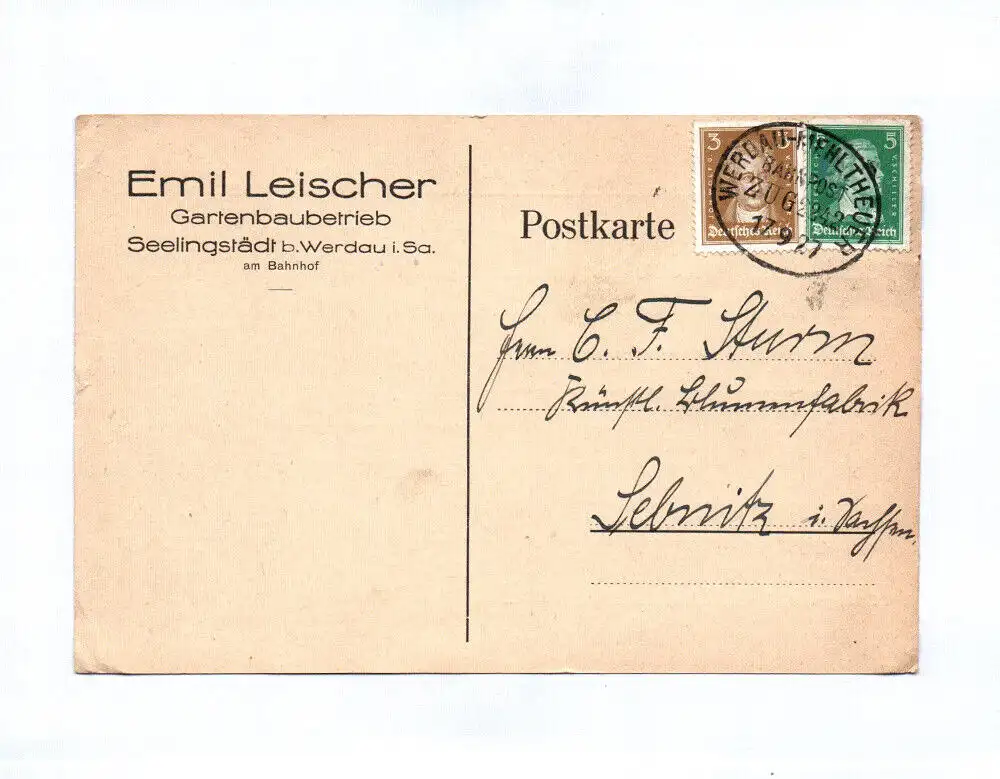 Emil Leischer
Gartenbaubetrieb
Seelingstädt b. Werdau i. Sa.
am Bahnhof
Postkarte
3
Deutsches Reich
5
V. SCHILLER
Deutsches Reich
WERDAU-MEHLTHEUER
BAHNPOST
ZUG 2242
17.9.27
Herrn C. F. Sturm
Künstl. Blumenfabrik
Sebnitz i. Sachsen.